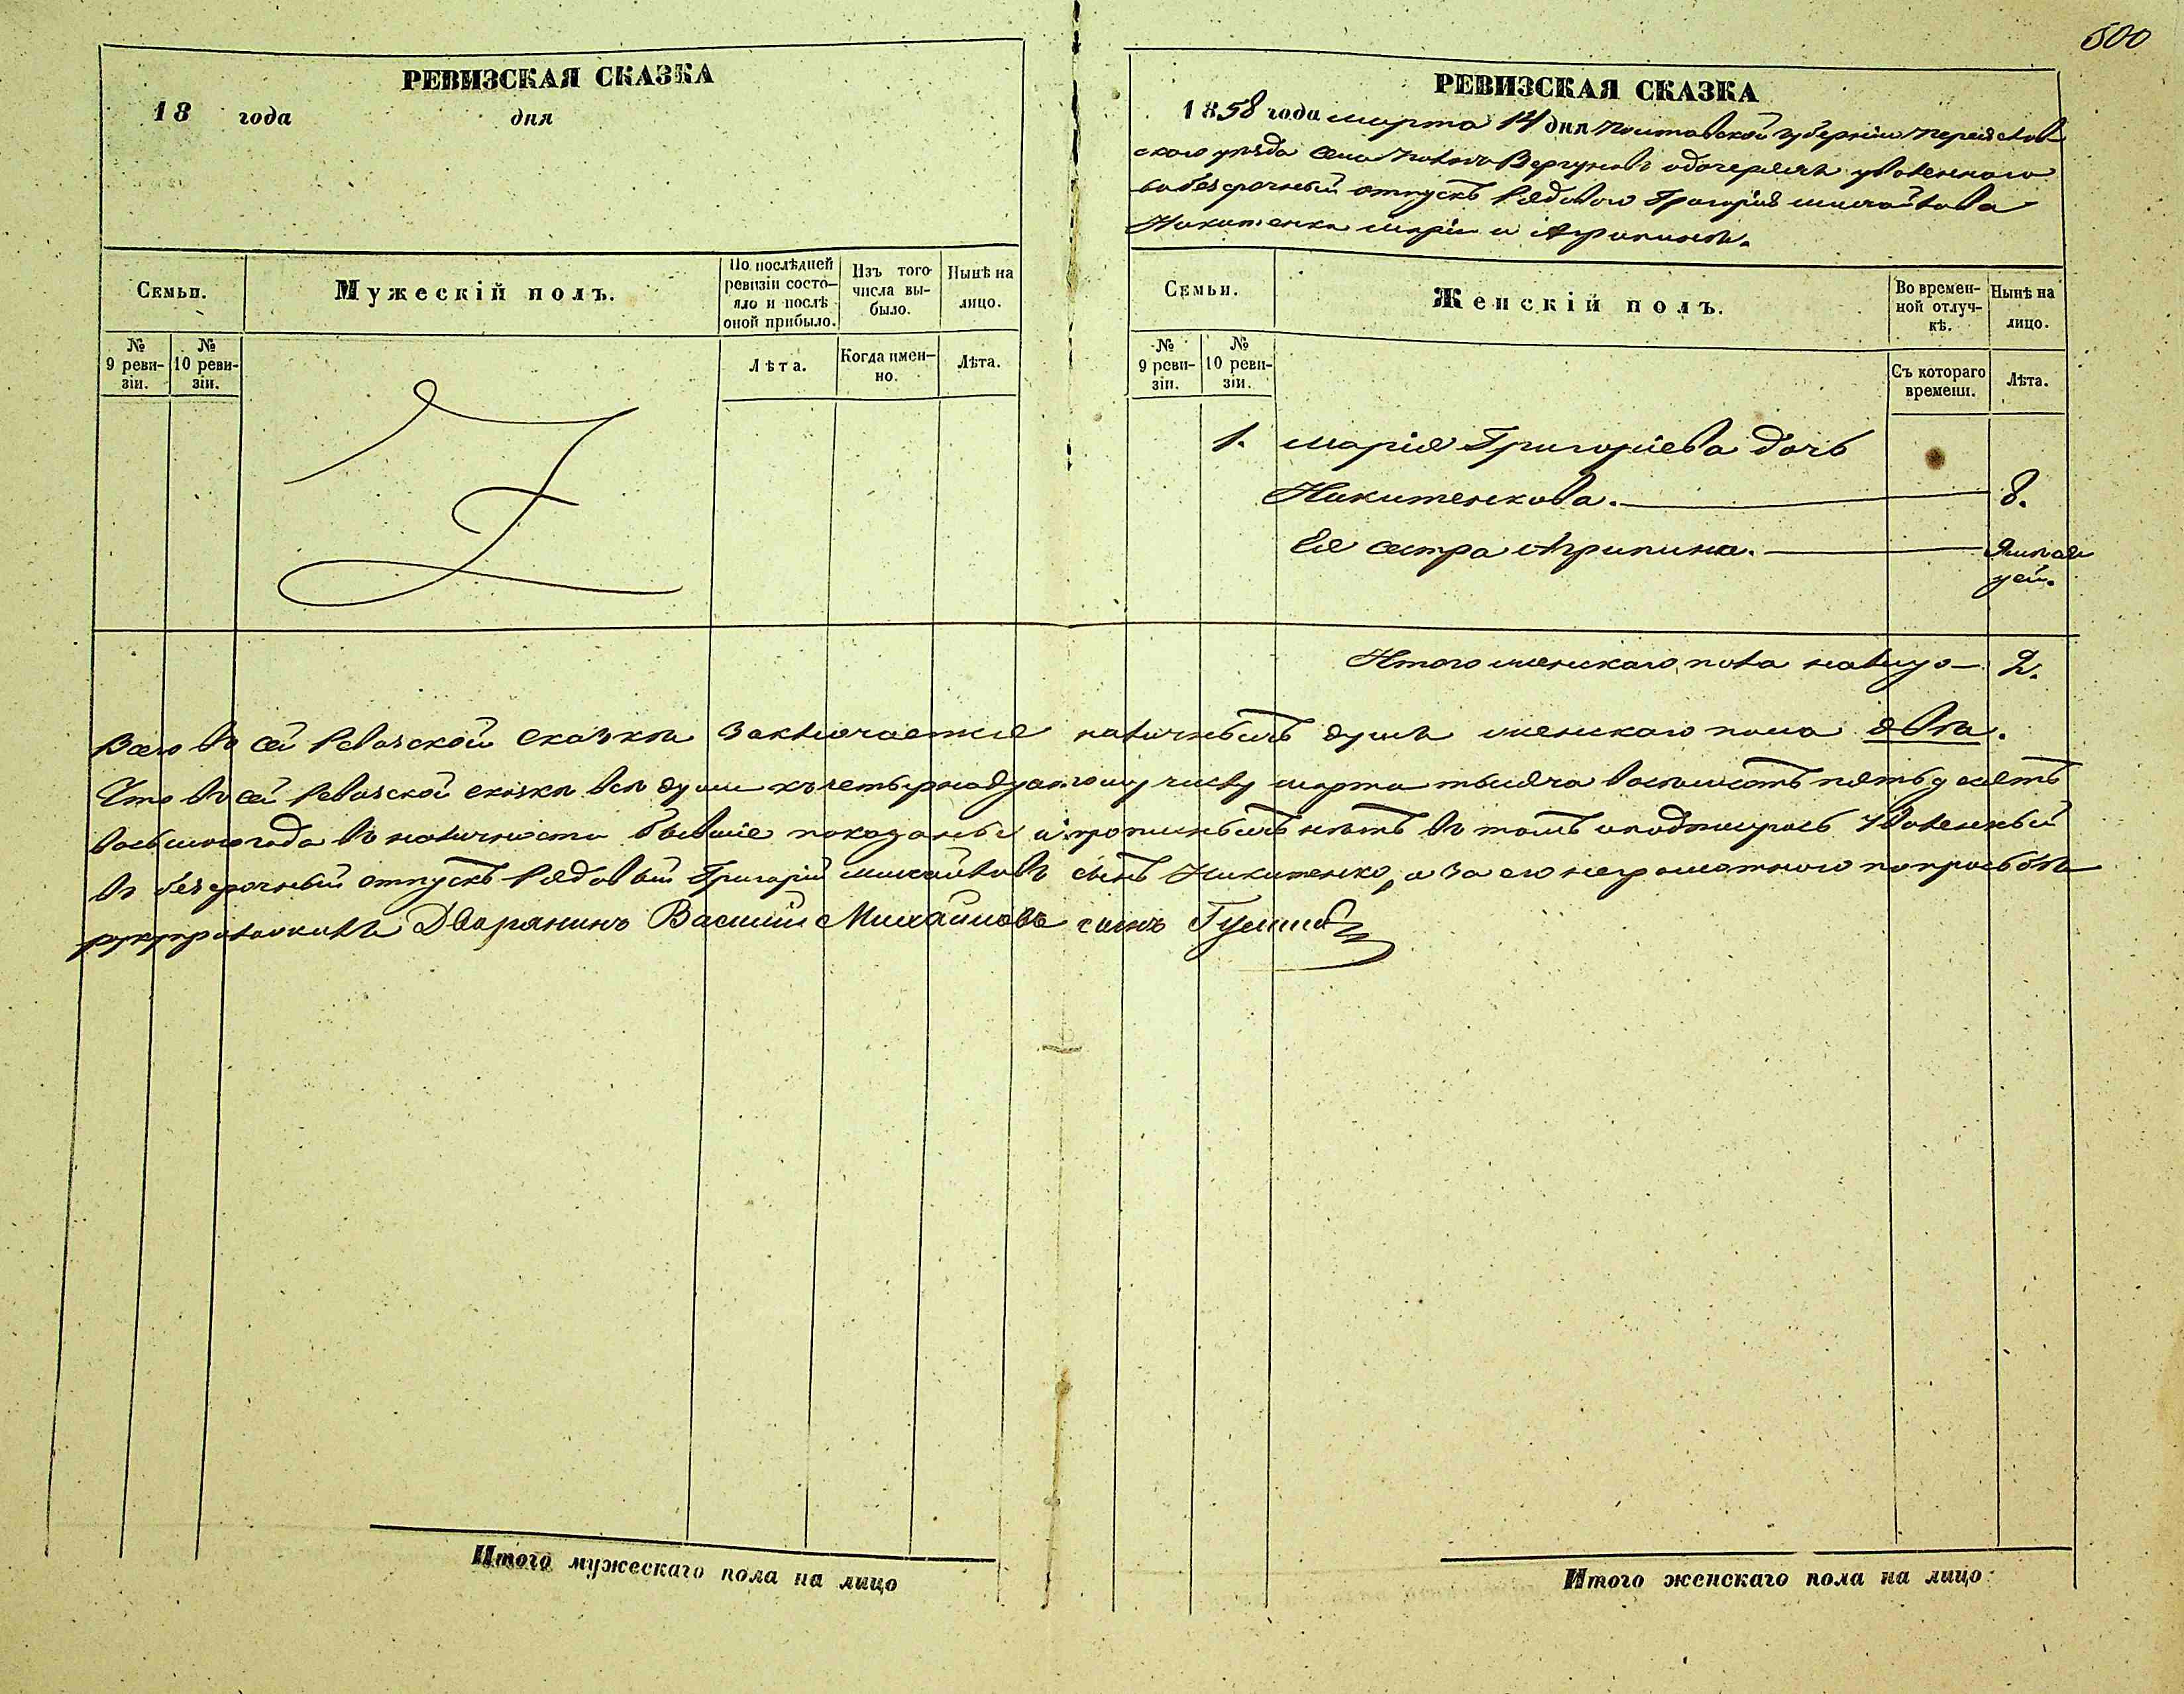 500
РЕВИЗСКАЯ СКАЗКА
18 года дня
РЕВИЗСКАЯ СКАЗКА
1858 года марта 14 дня Полтавской губерніи Переяслов
скаго уѣзда села Вергуновъ одочеряхъ уволеннаго
въ безсрочный отпускъ Рядоваго Григорія Михайлова
Никитенка Маріи и Агрипинѣ.
Семьи.
Мужескій полъ.
По послѣдней ревизіи состо-
яло и послѣ оной прибыло.
Изъ того числа вы-
было.
Нынѣ на лицо.
№ 9 реви-
зіи.
№ 10 реви-
зіи.
Лѣта.
Когда имен-
но.
Лѣта.
Семьи.
Женскій полъ.
Во времен-
ной отлуч-
кѣ.
Нынѣ на лицо.
№ 9 реви-
зіи.
№ 10 реви-
зіи.
Съ котораго времени.
Лѣта.
1. Марія Григоріева дочь
Никитенкова. 8.
Ея сестра Агрипина.
Итого женскаго пола налицо 2.
Всего въ сей Ревизской сказкѣ заключается наличныхъ душъ женскаго пола двѣ.
Что въ сей Ревизской сказкѣ всѣ души къ четырнадцатому числу марта тысяча восемьсотъ пятьдесятъ
восьмого года въ наличности бывшіе показаны и прописныхъ нѣтъ въ томъ и подпишусь Уволенный
въ безсрочный отпускъ Рядовый Григорій Михайловъ сынъ Никитенко, а за его неграмотного по прозьбѣ
Дворянинъ Василій Михайловъ сынъ
Итого мужескаго пола на лицо
Итого женскаго пола на лицо